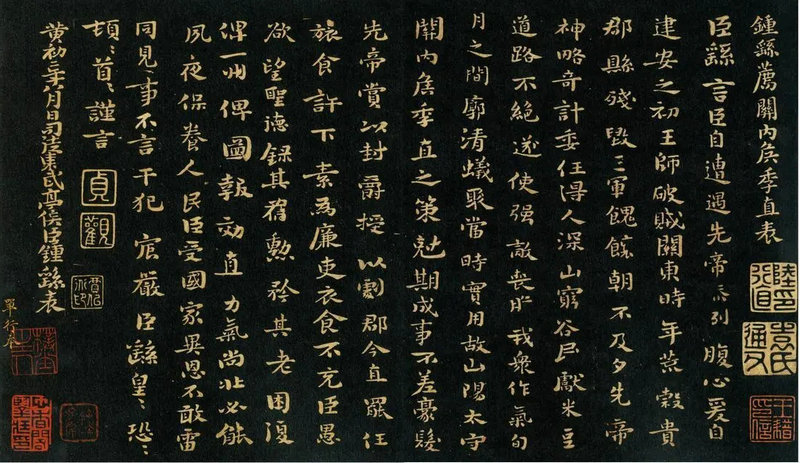 鍾繇薦關內侯季直表
臣繇言臣自遭遇先帝忝列腹心爰自
建安之初王師破賊關東時年荒穀貴
郡縣殘毀三軍餽饟朝不及夕先帝
神略奇計委任得人深山窮谷民獻米豆
道路不絕遂使强敵喪膽我衆作氣旬
月之間廓清蟻聚當時實用故山陽太守
關內侯季直之策尅期成事不差豪髮
先帝賞以封爵授以劇郡今直罷任
旅食許下素為廉吏衣食不充臣愚
欲望聖德錄其舊勳矜其老困復
俾一州俾圖報効直力氣尚壯必能
夙夜保養人民臣受國家異恩不敢雷
同見事不言干犯宸嚴臣繇皇〻恐〻
頓〻首〻謹言
黃初二年八月日司徒東武亭侯臣鍾繇表
貞觀
袁氏通父